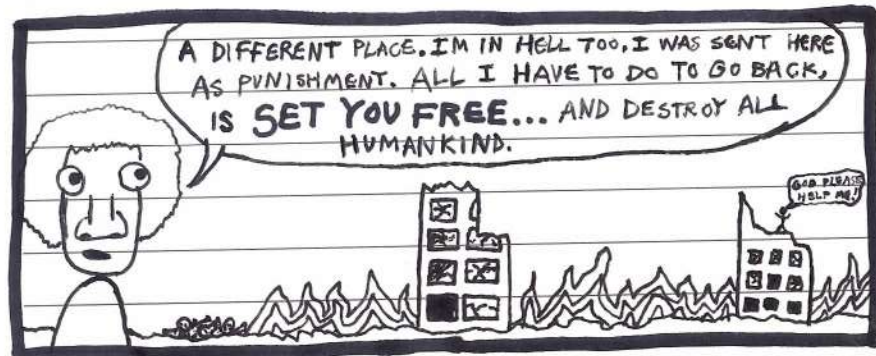 A DIFFERENT PLACE. IM IN HELL TOO. I WAS SENT HERE
AS PUNISHMENT. ALL I HAVE TO DO TO GO BACK,
IS SET YOU FREE... AND DESTROY ALL
HUMANKIND.
GOD PLEASE
HELP ME!